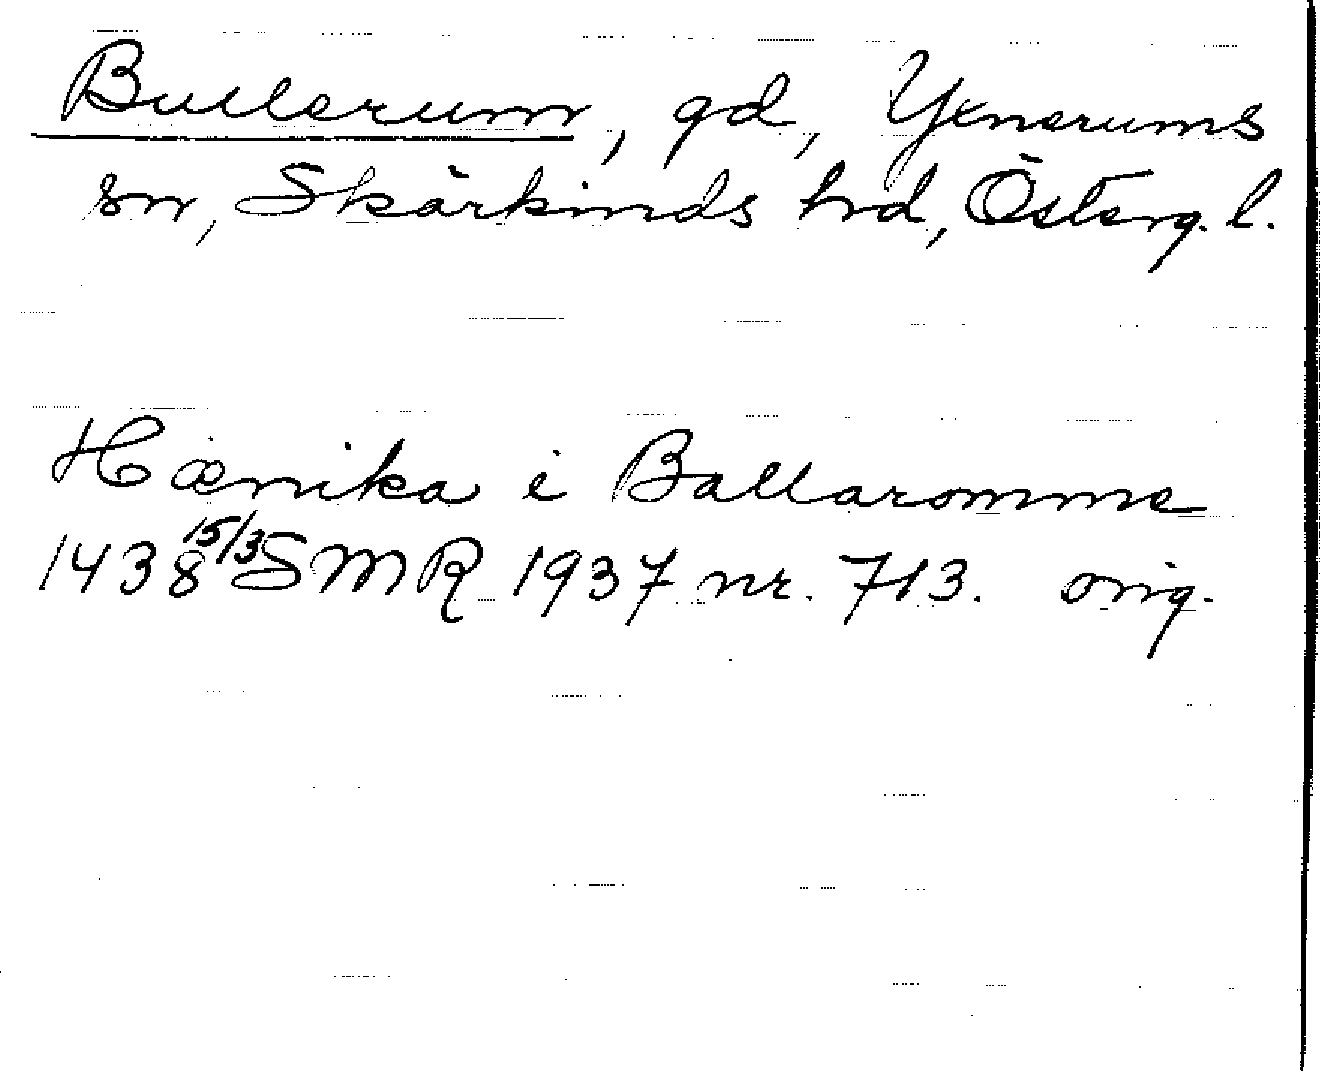 Bullerum, gd, Yxnerums
sn, Skärkinds hrd, Österg. l.
Hænika i Ballaromme
1438 15/3 SMR 1937 nr. 713. orig.